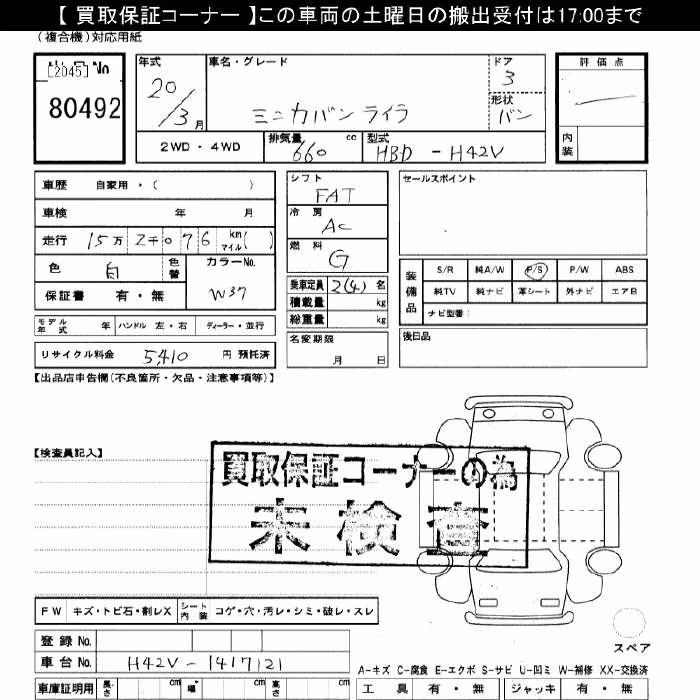 【 買取保証コーナー 】この車両の土曜日の搬出受付は17:00まで
(複合機)対応用紙
[2045] No
80492
年式
20/3月
車名・グレード
ミニカバン ライラ
ドア
3
形状
バン
評価点
内装
2WD・4WD
排気量 660 cc
型式 HBD - H42V
車歴 自家用・( )
車検 年 月
走行 15万 2千076 km マイル( )
色 白 色替
カラーNo. W37
保証書 有・無
モデル年式 年 ハンドル 左・右 ディーラー・並行
リサイクル料金 5,410 円 預託済
シフト
FAT
冷房
AC
燃料
G
乗車定員 2(4) 名
積載量 kg
総重量 kg
名変期限
月 日
セールスポイント
装備品
S/R 純A/W P/S P/W ABS
純TV 純ナビ 革シート 外ナビ エアB
ナビ型番:
後日品
【出品店申告欄(不良箇所・欠品・注意事項等)】
【検査員記入】
買取保証コーナーの為
未検査
FW キズ・トビ石・割レX シート内装 コゲ・穴・汚レ・シミ・破レ・スレ
スペア
登録 No.
車台 No. H42V-1417121
A-キズ C-腐食 E-エクボ S-サビ U-凹ミ W-補修 XX-交換済
車庫証明用 長さ cm 幅 cm 高さ cm
工具 有・無 ジャッキ 有・無